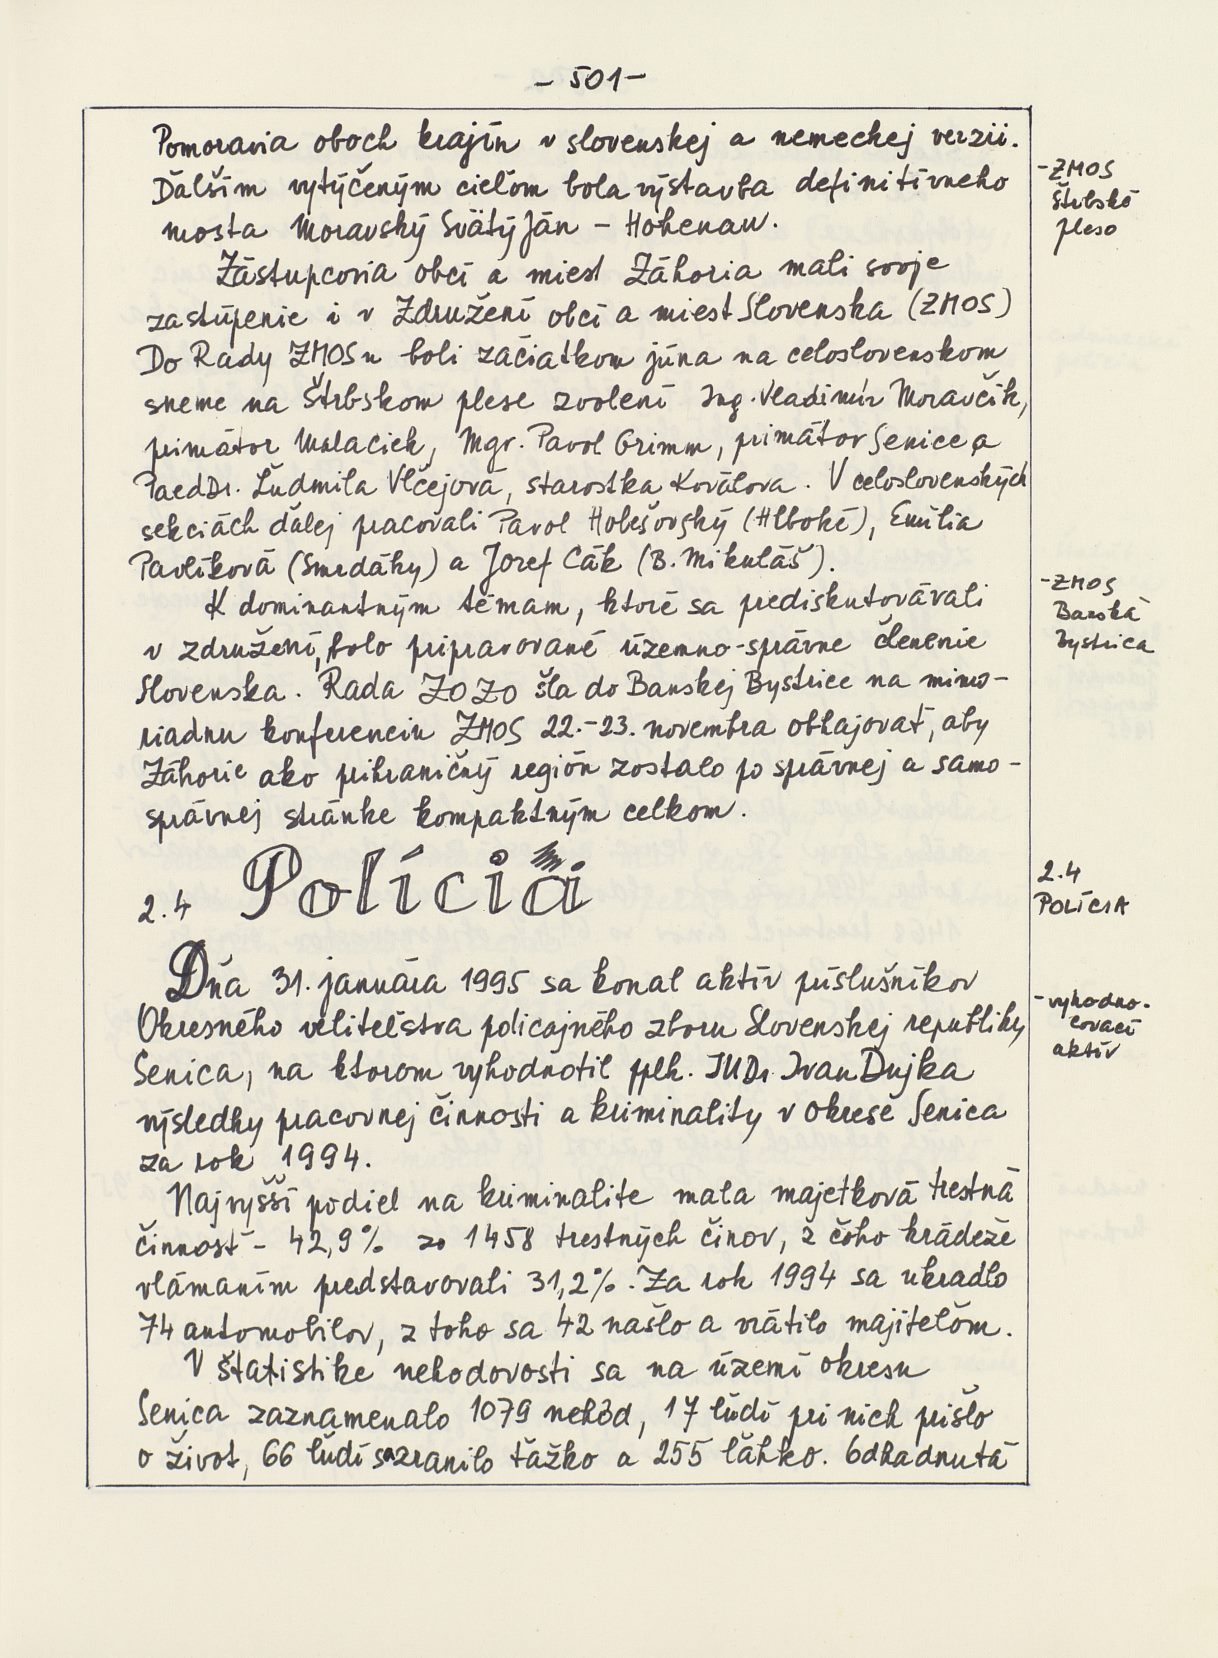 - 501 -
Pomoravia oboch krajín v slovenskej a nemeckej verzii.
Ďalším vytýčeným cieľom bola výstavba definitívneho
mosta Moravský Svätý Ján - Hohenau.
Zástupcovia obcí a miest Záhoria mali svoje
zastúpenie i v Združení obcí a miest Slovenska (ZMOS)
Do Rady ZMOSu boli začiatkom júna na celoslovenskom
sneme na Štrbskom plese zvolení Ing. Vladimír Moravčík,
primátor Malaciek, Mgr. Pavol Grimm, primátor Senice a
PaedDr. Ľudmila Vlčejová, starostka Koválova. V celoslovenských
sekciách ďalej pracovali Pavol Hobešovský (Hlboké), Emília
Pavlíková (Smrdáky) a Jozef Cák (B. Mikuláš).
K dominantným témam, ktoré sa prediskutovávali
v združení, bolo pripravované územno-správne členenie
Slovenska. Rada ZOZO šla do Banskej Bystrice na mimo-
riadnu konferenciu ZMOS 22.-23. novembra obhajovať, aby
Záhorie ako prihraničný región zostalo po správnej a samo-
správnej stránke kompaktným celkom.
2.4 Polícia
Dňa 31. januára 1995 sa konal aktív príslušníkov
Okresného veliteľstva policajného zboru Slovenskej republiky
Senica, na ktorom vyhodnotil pplk. JUDr. Ivan Dujka
výsledky pracovnej činnosti a kriminality v okrese Senica
za rok 1994.
Najvyšší podiel na kriminalite mala majetková trestná
činnosť - 42,9% zo 1458 trestných činov, z čoho krádeže
vlámaním predstavovali 31,2%. Za rok 1994 sa ukradlo
74 automobilov, z toho sa 42 našlo a vrátilo majiteľom.
V štatistike nehodovosti sa na území okresu
Senica zaznamenalo 1079 nehôd, 17 ľudí pri nich prišlo
o život, 66 ľudí sa zranilo ťažko a 255 ľahko. Odhadnutá
- ZMOS
Štrbské
pleso
- ZMOS
Banská
Bystrica
2.4
POLÍCIA
- vyhodno-
covací
aktív